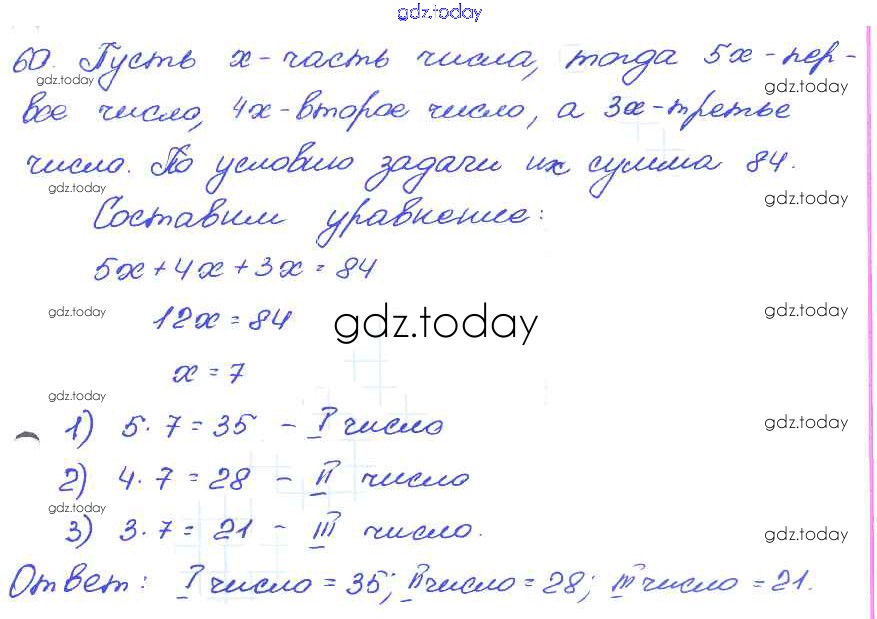 gdz.today
60. Пусть x - часть числа, тогда 5x - пер-
gdz.today
gdz.today
вое число, 4x - второе число, а 3x - третье
число. По условию задачи их сумма 84.
gdz.today
gdz.today
Составим уравнение:
5x + 4x + 3x = 84
12x = 84
gdz.today
gdz.today
gdz.today
x = 7
gdz.today
1) 5 · 7 = 35 - I число
gdz.today
2) 4 · 7 = 28 - II число
gdz.today
3) 3 · 7 = 21 - III число.
gdz.today
Ответ: I число = 35; II число = 28; III число = 21.